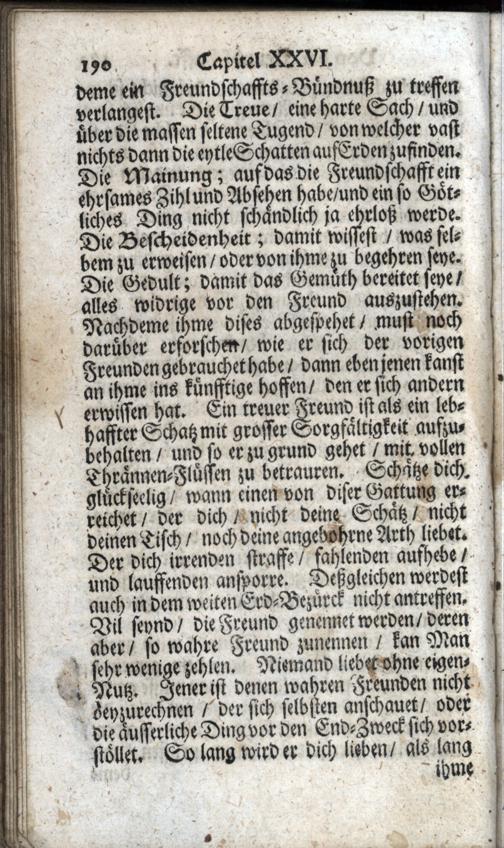 190 Capitel XXVI.
deme ein Freundschaffts-Bündnuß zu treffen
verlangest. Die Treue / eine harte Sach / und
über die massen seltene Tugend / von welcher vast
nichts dann die eytle Schatten auf Erden zufinden.
Die Mainung; auf das die Freundschafft ein
ehrsames Zihl und Absehen habe / und ein so Göt-
liches Ding nicht schändlich ja ehrloß werde.
Die Bescheidenheit; damit wissest / was sel-
bem zu erweisen / oder von ihme zu begehren seye.
Die Gedult; damit das Gemüth bereitet seye /
alles widrige vor den Freund auszustehen.
Nachdeme ihme dises abgespehet / must noch
darüber erforschen / wie er sich der vorigen
Freunden gebrauchet habe / dann eben jenen kanst
an ihme ins künfftige hoffen / den er sich andern
erwissen hat. Ein treuer Freund ist als ein leb-
haffter Schatz mit grosser Sorgfältigkeit aufzu-
behalten / und so er zu grund gehet / mit vollen
Thrännen-Flüssen zu betrauren. Schätze dich
glückseelig / wann einen von diser Gattung er-
reichet / der dich / nicht deine Schätz / nicht
deinen Tisch / noch deine angebohrne Arth liebet.
Der dich irrenden straffe / fahlenden aufhebe /
und lauffenden ansporre. Deßgleichen werdest
auch in dem weiten Erd-Bezürck nicht antreffen.
Vil seynd / die Freund genennet werden / deren
aber / so wahre Freund zunennen / kan Man
sehr wenige zehlen. Niemand liebet ohne eigen-
Nutz. Jener ist denen wahren Freunden nicht
beyzurechnen / der sich selbsten anschauet / oder
die äusserliche Ding vor den End-Zweck sich vor-
stöllet. So lang wird er dich lieben / als lang
ihme